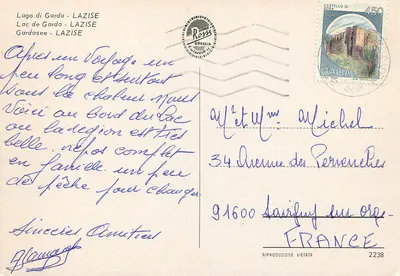 Lago di Garda - LAZISE
Lac de Garda - LAZISE
Gardasee - LAZISE
Après un voyage un
peu long et surtout
sous la chaleur nous
voici au bord du lac
ou la region est très
belle. repos complet
en famille un peu
de pêche pour changer
Sincères Amitiés
450
ITALIA
Mr et Mme Michel
34 Avenue des Pervenches
91600 Savigny sur orge
FRANCE
RIPRODUZIONE VIETATA
2238